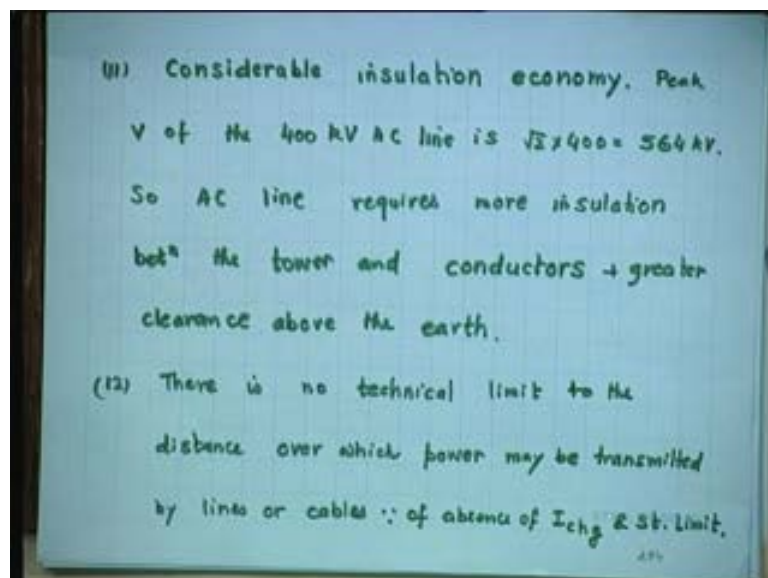 (11) Considerable insulation economy. Peak
V of the 400 kV AC line is √2 × 400 = 564 kV.
So AC line requires more insulation
betⁿ the tower and conductors + greater
clearance above the earth.
(12) There is no technical limit to the
distance over which power may be transmitted
by lines or cables ∵ of absence of I_chg & St. Limit.